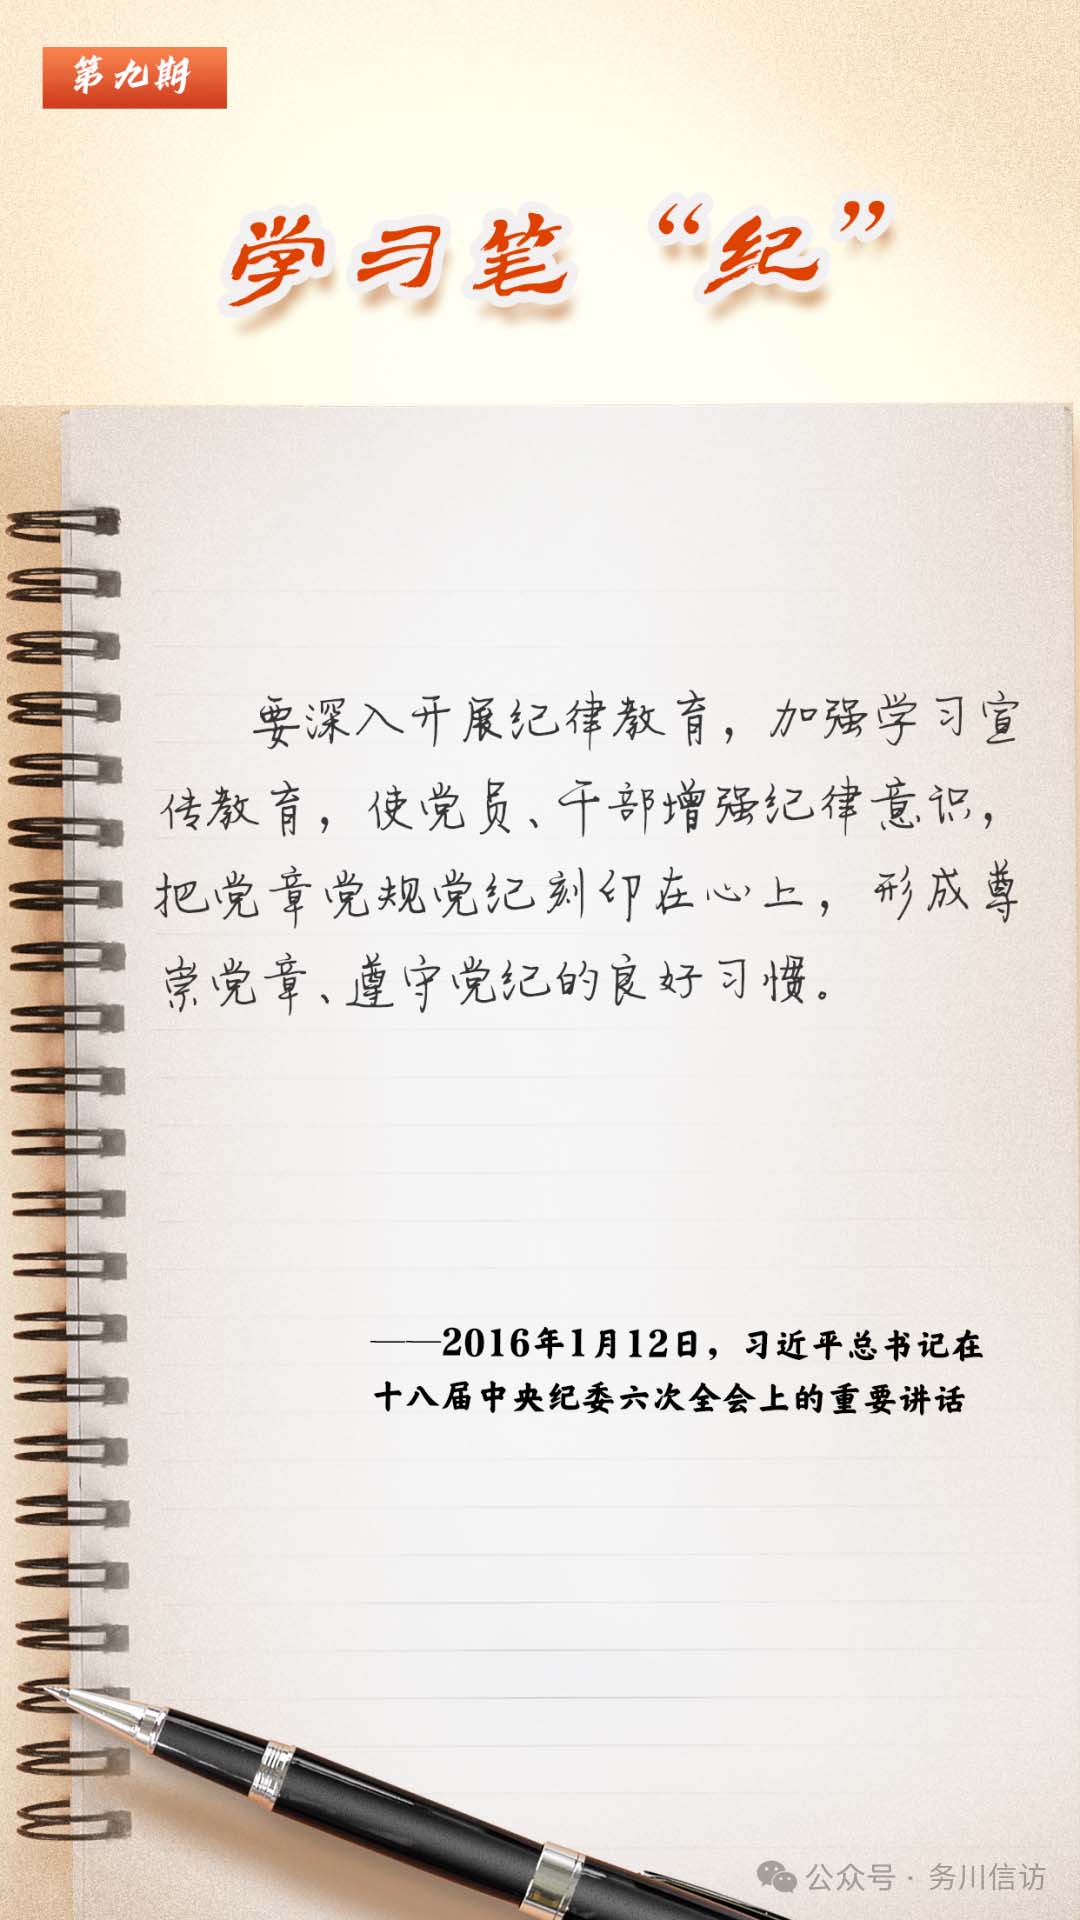 第九期
学习笔“纪”
要深入开展纪律教育，加强学习宣
传教育，使党员、干部增强纪律意识，
把党章党规党纪刻印在心上，形成尊
崇党章、遵守党纪的良好习惯。
——2016年1月12日，习近平总书记在
十八届中央纪委六次全会上的重要讲话
公众号·务川信访